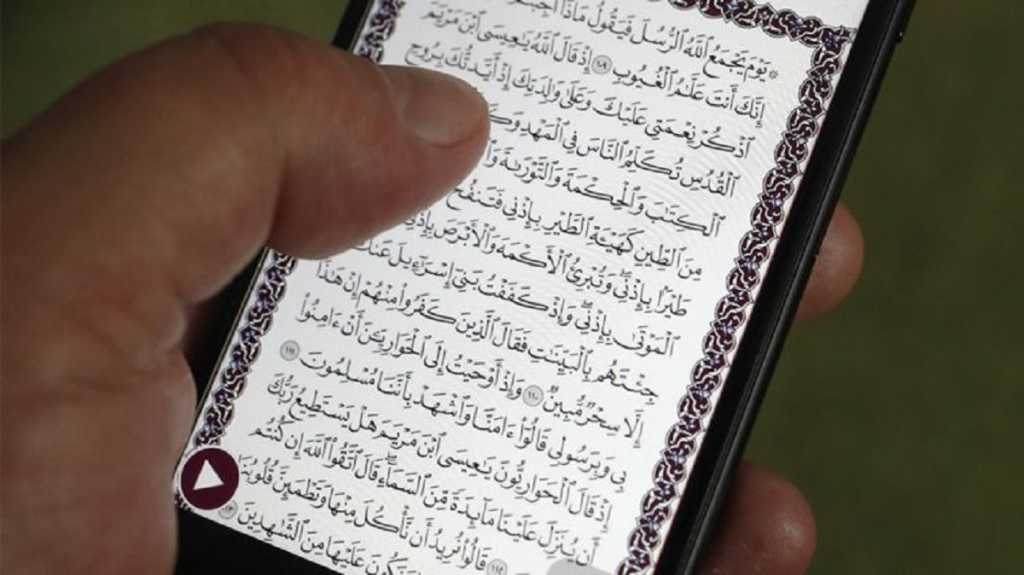 ۞ يَوْمَ يَجْمَعُ ٱللَّهُ ٱلرُّسُلَ فَيَقُولُ مَاذَآ أُجِبْتُمْ
إِنَّكَ أَنتَ عَلَّٰمُ ٱلْغُيُوبِ ١٠٩ إِذْ قَالَ ٱللَّهُ يَٰعِيسَى ٱبْنَ مَرْيَمَ
ٱذْكُرْ نِعْمَتِي عَلَيْكَ وَعَلَىٰ وَٰلِدَتِكَ إِذْ أَيَّدتُّكَ بِرُوحِ
ٱلْقُدُسِ تُكَلِّمُ ٱلنَّاسَ فِي ٱلْمَهْدِ
ٱلْكِتَٰبَ وَٱلْحِكْمَةَ وَٱلتَّوْرَىٰةَ
مِنَ ٱلطِّينِ كَهَيْـَٔةِ ٱلطَّيْرِ بِإِذْنِي فَتَنفُخُ
طَيْرًۢا بِإِذْنِي ۖ وَتُبْرِئُ ٱلْأَكْمَهَ وَٱلْأَبْرَصَ بِإِذْنِي
ٱلْمَوْتَىٰ بِإِذْنِي ۖ وَإِذْ كَفَفْتُ بَنِيٓ إِسْرَٰٓءِيلَ عَنكَ
جِئْتَهُم بِٱلْبَيِّنَٰتِ فَقَالَ ٱلَّذِينَ كَفَرُوا۟ مِنْهُمْ إِنْ هَٰذَآ
إِلَّا سِحْرٌ مُّبِينٌ ١١٠ وَإِذْ أَوْحَيْتُ إِلَى ٱلْحَوَارِيِّـۧنَ أَنْ ءَامِنُوا۟
بِي وَبِرَسُولِي قَالُوٓا۟ ءَامَنَّا وَٱشْهَدْ بِأَنَّنَا مُسْلِمُونَ ١١١
إِذْ قَالَ ٱلْحَوَارِيُّونَ يَٰعِيسَى ٱبْنَ مَرْيَمَ هَلْ يَسْتَطِيعُ رَبُّكَ
أَن يُنَزِّلَ عَلَيْنَا مَآئِدَةً مِّنَ ٱلسَّمَآءِ ۖ قَالَ ٱتَّقُوا۟ ٱللَّهَ إِن كُنتُم
١١٢ قَالُوا۟ نُرِيدُ أَن نَّأْكُلَ مِنْهَا وَتَطْمَئِنَّ قُلُوبُنَا
وَنَكُونَ عَلَيْهَا مِنَ ٱلشَّٰهِدِينَ ١١٣